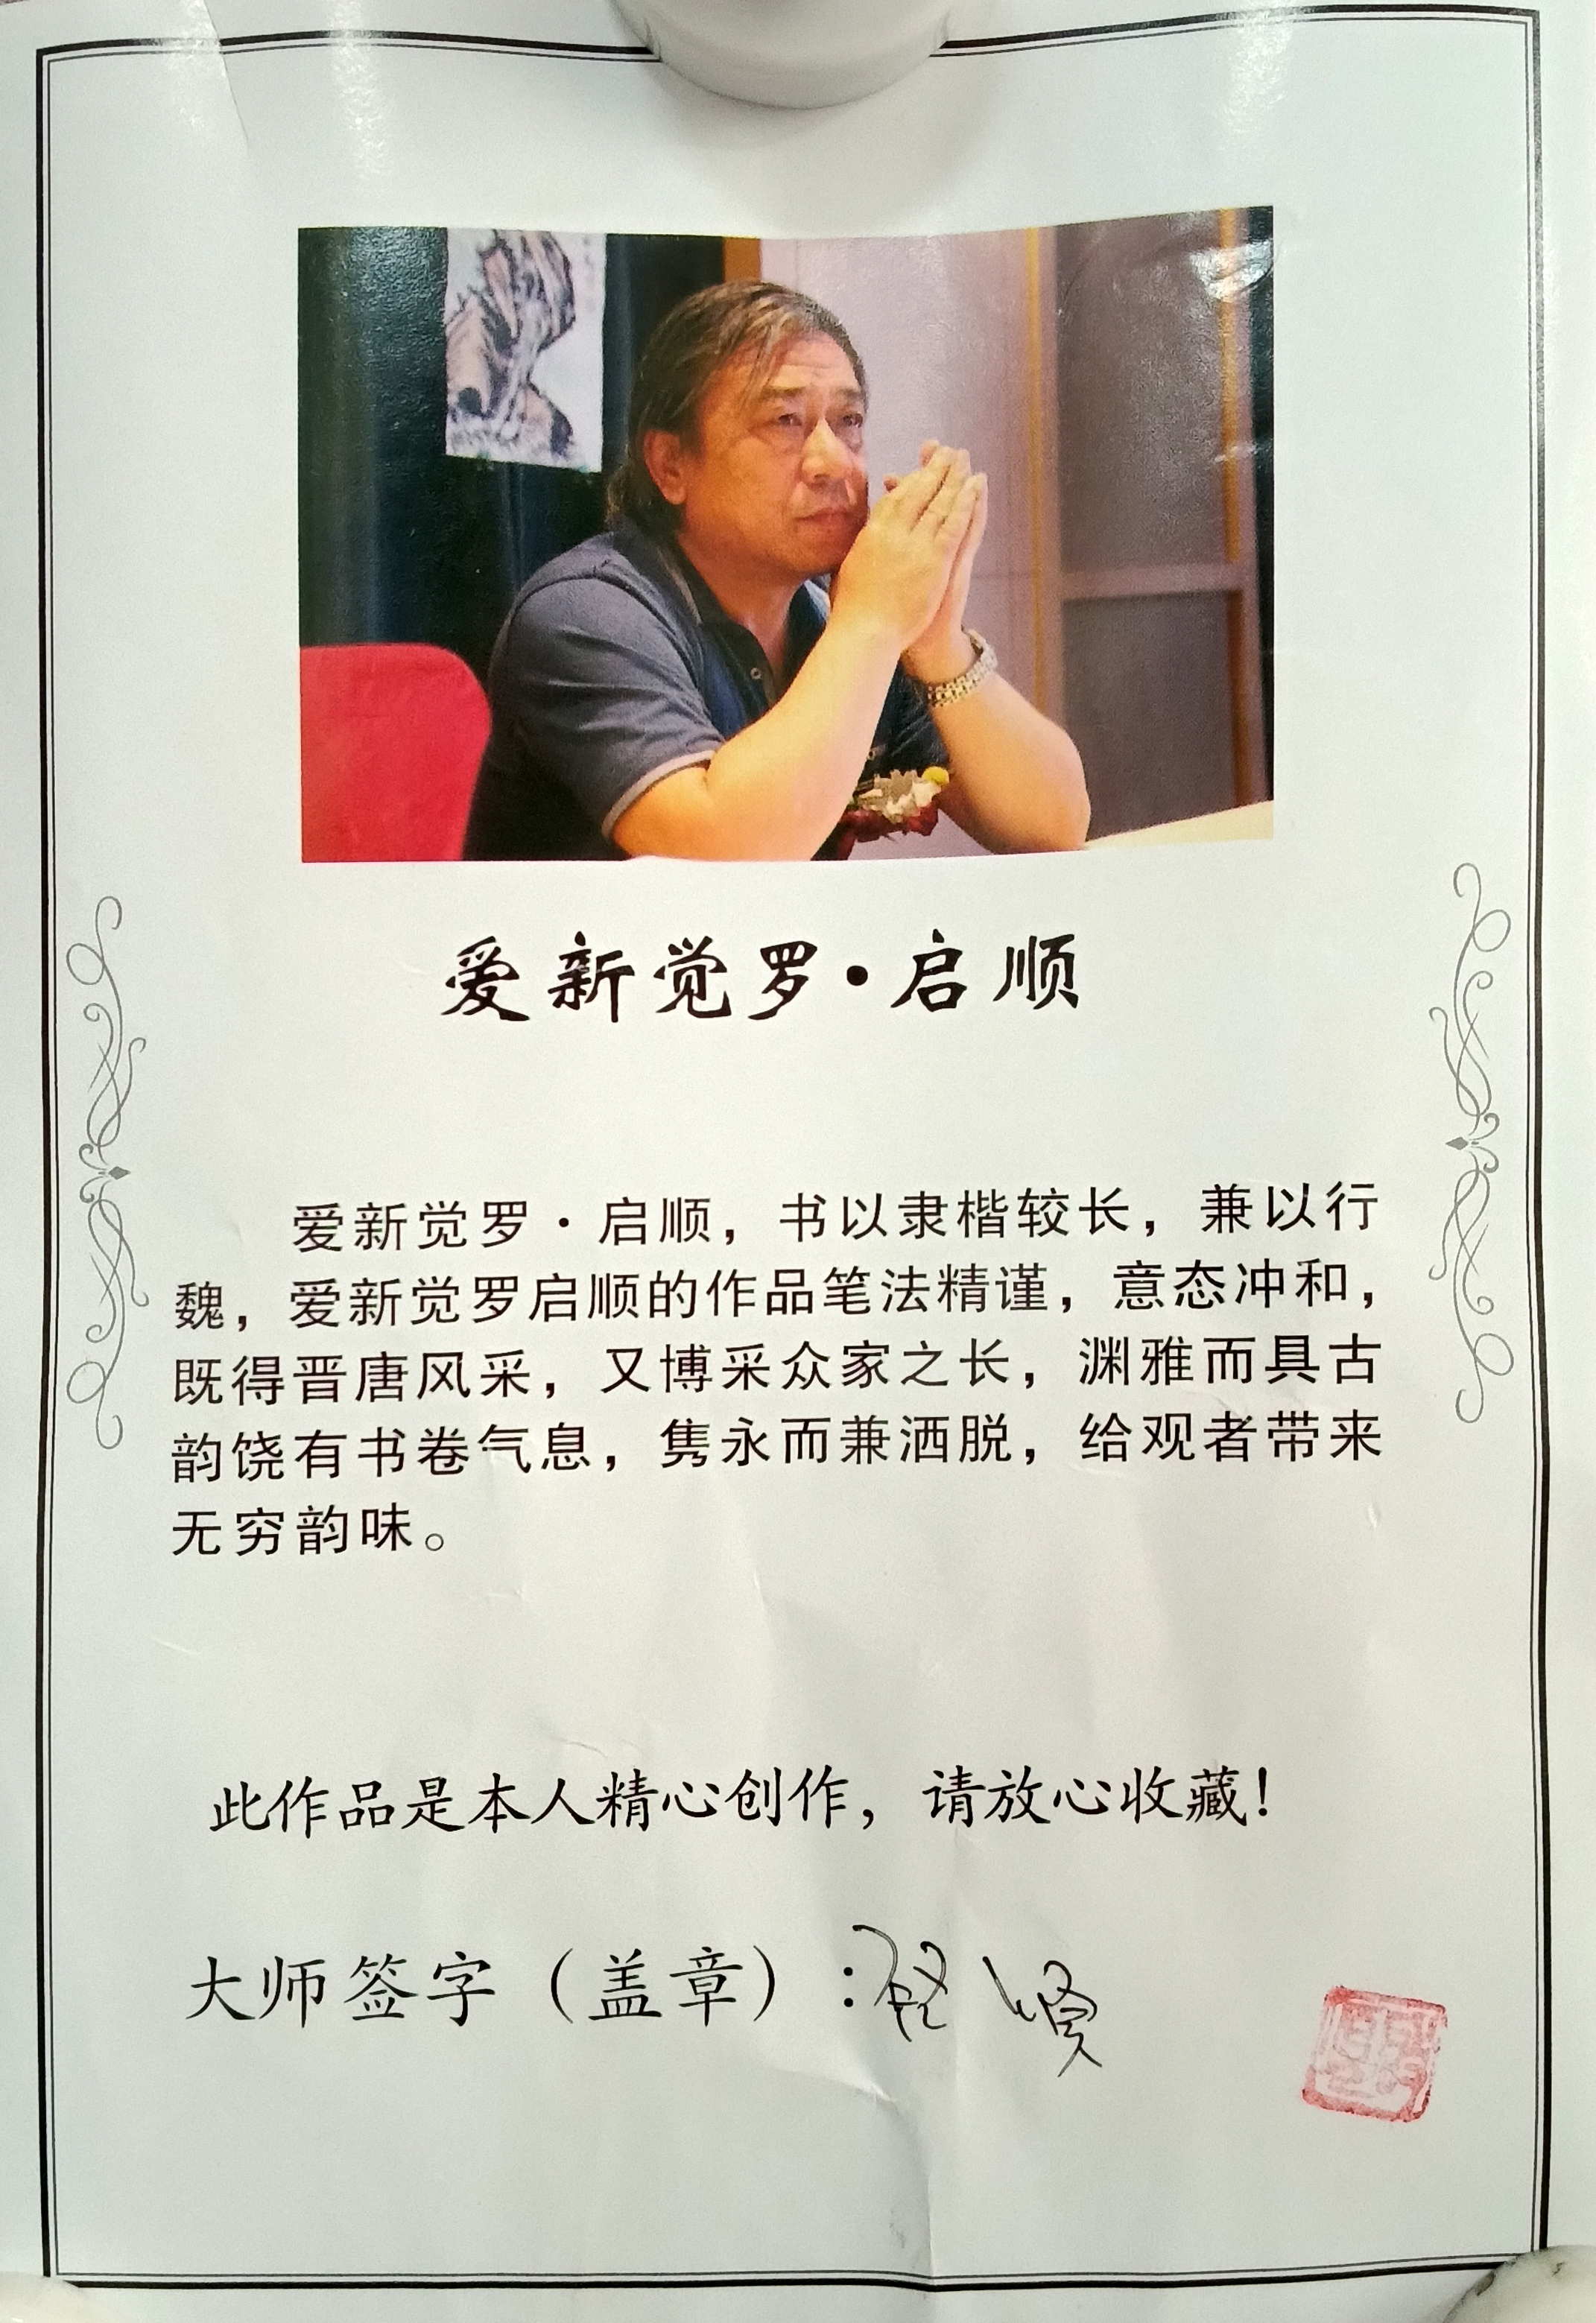 爱新觉罗·启顺
爱新觉罗·启顺，书以隶楷较长，兼以行
魏，爱新觉罗启顺的作品笔法精谨，意态冲和，
既得晋唐风采，又博采众家之长，渊雅而具古
韵饶有书卷气息，隽永而兼洒脱，给观者带来
无穷韵味。
此作品是本人精心创作，请放心收藏！
大师签字（盖章）：